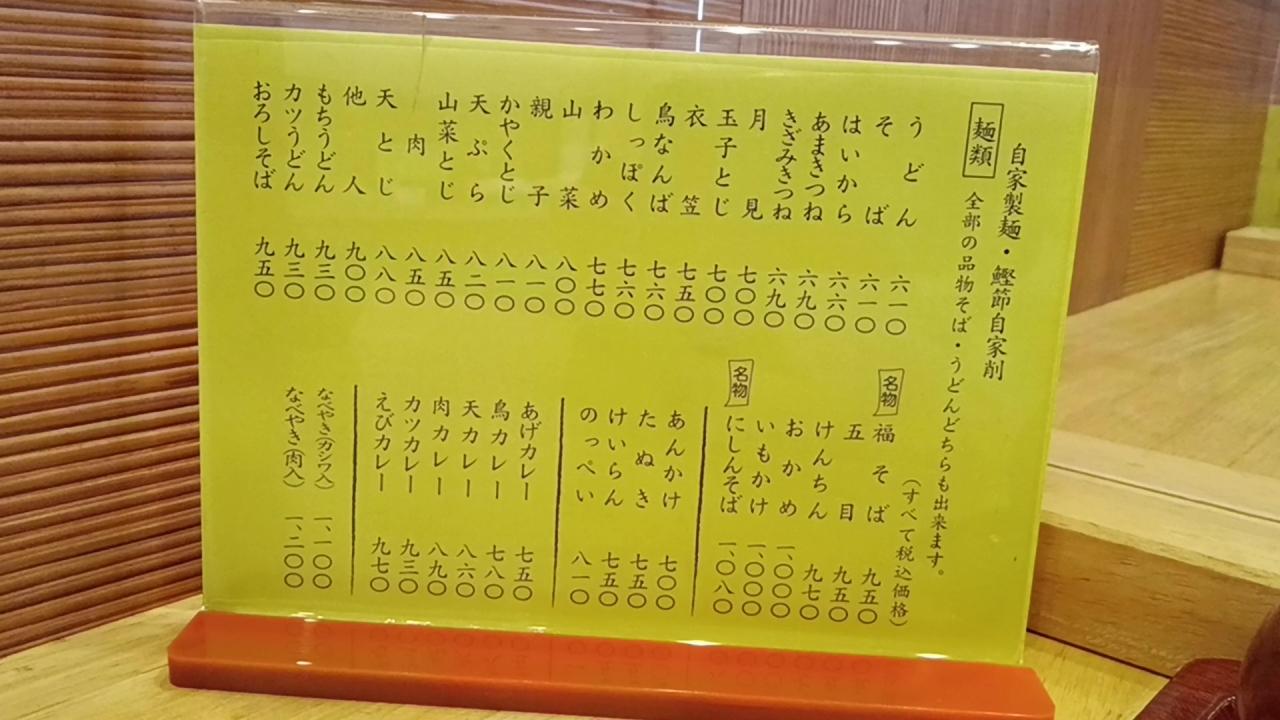 自家製麺・鰹節自家削
麺類 全部の品物そば・うどんどちらも出来ます。
(すべて税込価格)
うどん 六一〇
そば 六一〇
はいから 六六〇
あまきつね 六九〇
きざみきつね 六九〇
月見 七〇〇
玉子とじ 七〇〇
衣笠 七五〇
鳥なんば 七六〇
しっぽく 七六〇
わかめ 七七〇
山菜 八〇〇
親子 八一〇
かやくとじ 八一〇
天ぷら 八二〇
山菜とじ 八五〇
肉 八五〇
天とじ 八八〇
他人 九〇〇
もちうどん 九三〇
カツうどん 九三〇
おろしそば 九五〇
名物 福そば 九五〇
五目 九五〇
けんちん 九七〇
おかめ 一、〇〇〇
いもかけ 一、〇〇〇
名物 にしんそば 一、〇八〇
あんかけ 七〇〇
たぬき 七五〇
けいらん 七五〇
のっぺい 八一〇
あげカレー 七五〇
鳥カレー 七八〇
天カレー 八六〇
肉カレー 八九〇
カツカレー 九三〇
えびカレー 九七〇
なべやき(カシワ入) 一、一〇〇
なべやき(肉入) 一、二〇〇